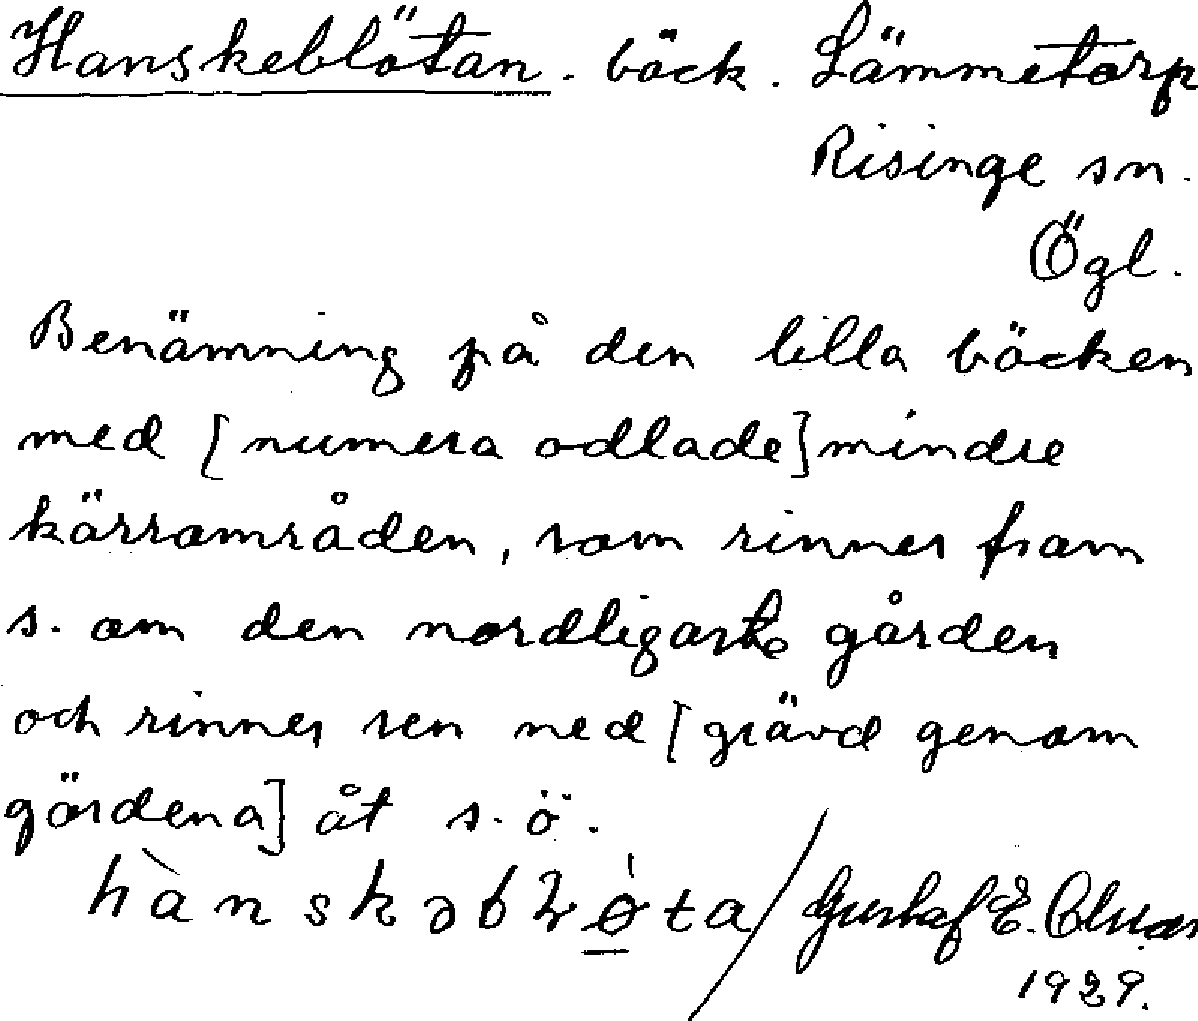 Hanskeblötan. bäck. Lämmetorp
Risinge sn.
Ögl.
Benämning på den lilla bäcken
med [numera odlade] mindre
kärrområden, som rinner fram
s. om den nordligaste gården
och rinner sen ned [grävd genom
gärdena] åt s.ö.
Gustaf E. Olsson
1929.